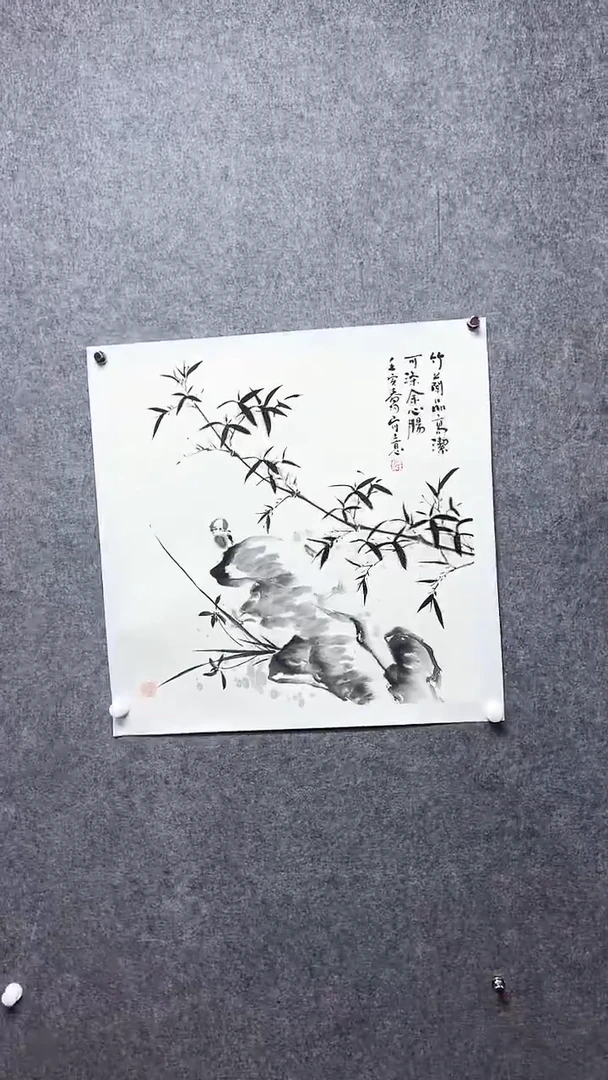 竹蘭品高潔
可滌余心腸
壬寅春月守意